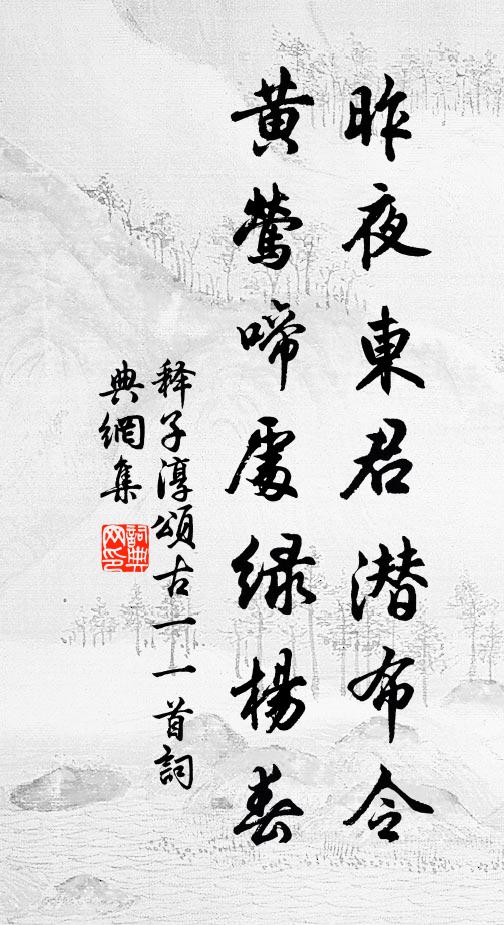 昨夜東君潜布令
黃鶯啼處绿楊春
释子淳頌古一一首詞
典網集
詞典网印